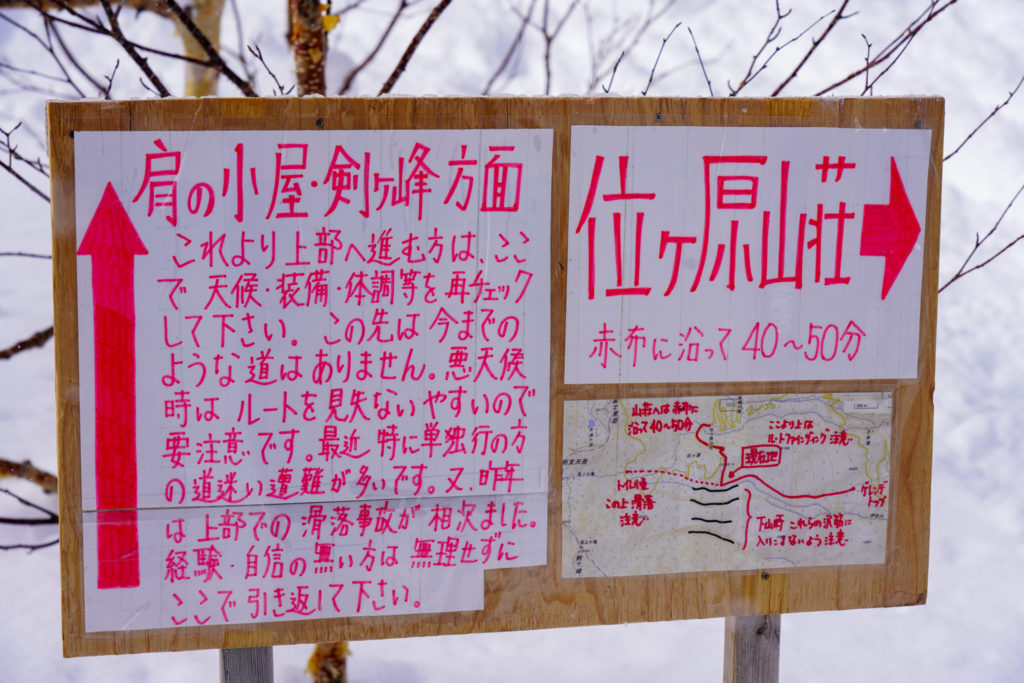 肩の小屋・剣ヶ峰方面
これより上部へ進む方は、ここ
で天候・装備・体調等を再チェック
して下さい。この先は今までの
ような道はありません。悪天候
時はルートを見失ないやすいので
要注意です。最近特に単独行の方
の道迷い遭難が多いです。又、昨年
は上部での滑落事故が相次ました。
経験・自信の無い方は無理せずに
ここで引き返して下さい。
位ヶ原山荘
赤布に沿って40〜50分
山荘へは赤布に
沿って40〜50分
ここより上は
ルートファインディング注意
現在地
トイレ
この上滑落
注意
ゲレンデ
トップ
下山時これらの沢筋に
入りこまないよう注意